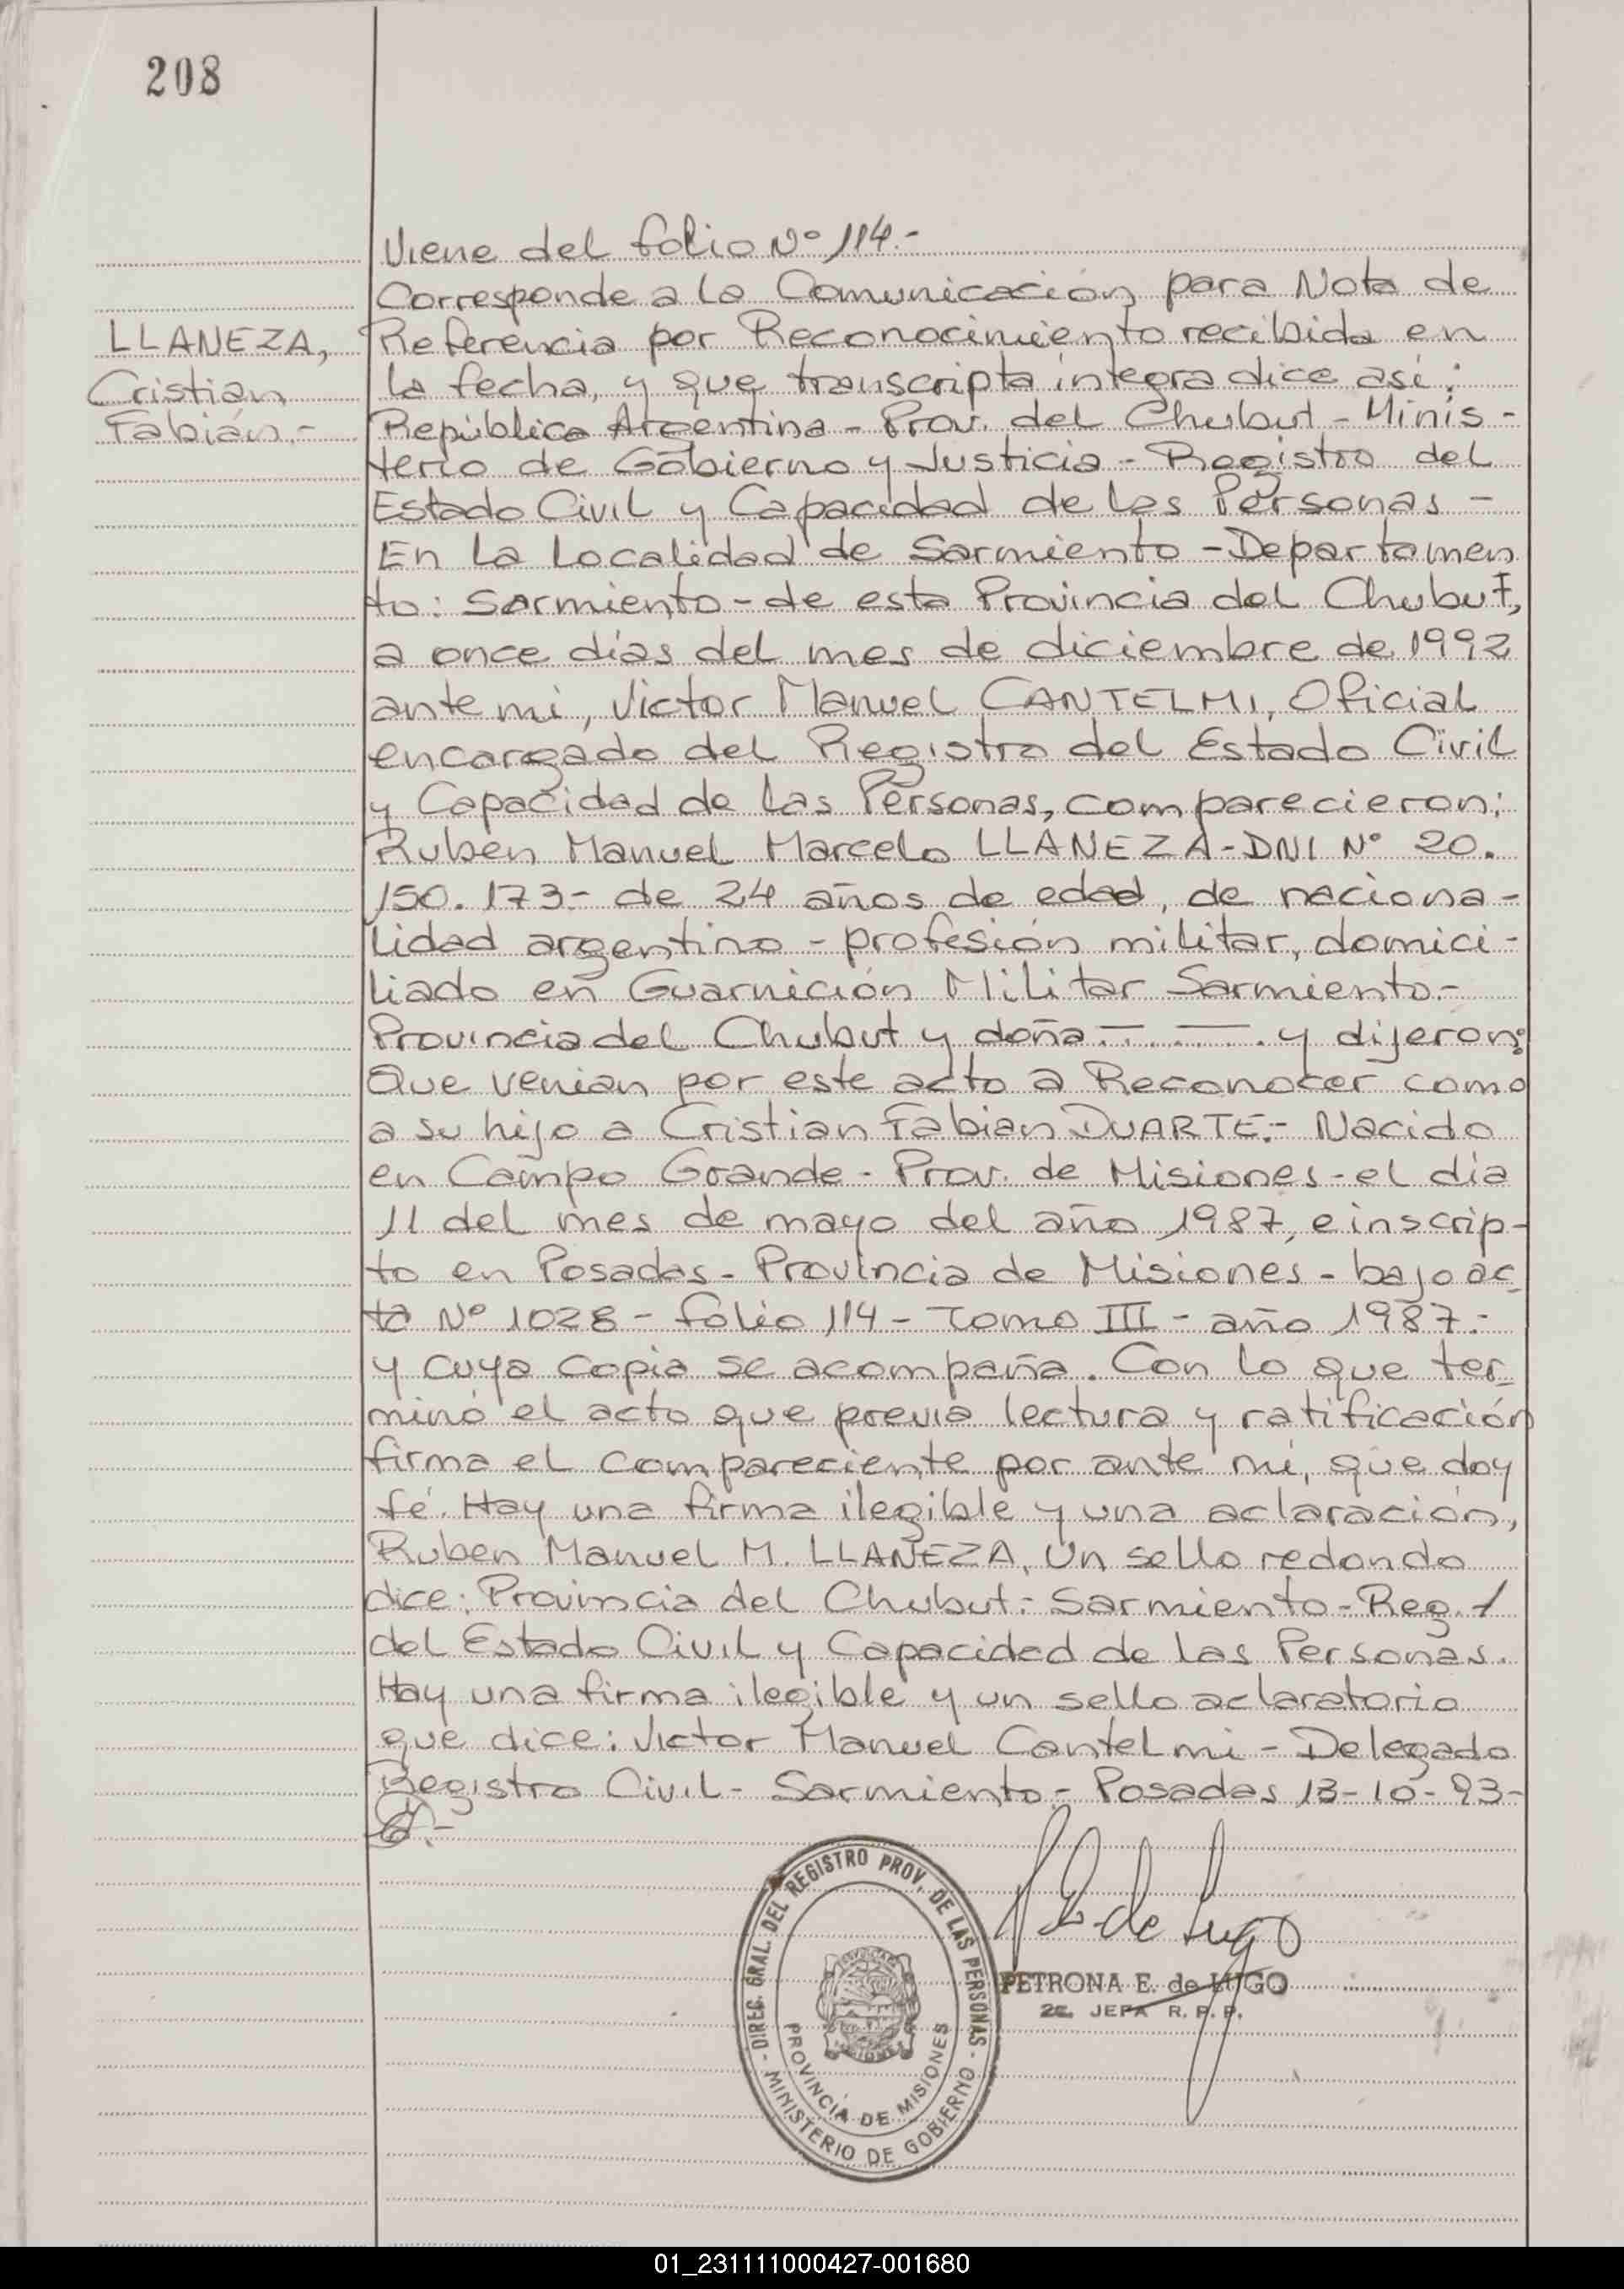 208
LLANEZA,
Cristian
Fabián.-
Viene del folio Nº 114.-
Corresponde a la Comunicación para Nota de
Referencia por Reconocimiento recibida en
la fecha, y que transcripta integra dice así:
República Argentina - Prov. del Chubut - Minis-
terio de Gobierno y Justicia - Registro del
Estado Civil y Capacidad de las Personas -
En La Localidad de Sarmiento - Departamen
to: Sarmiento - de esta Provincia del Chubut,
a once días del mes de diciembre de 1992
ante mi, Victor Manuel CANTELMI, Oficial
encargado del Registro del Estado Civil
y Capacidad de las Personas, comparecieron:
Ruben Manuel Marcelo LLANEZA - DNI Nº 20.
150.173- de 24 años de edad, de naciona-
lidad argentina - profesión militar, domici-
liado en Guarnición Militar Sarmiento.-
Provincia del Chubut y doña —.—. y dijeron:
Que venian por este acto a Reconocer como
a su hijo a Cristian Fabian DUARTE.- Nacido
en Campo Grande - Prov. de Misiones - el día
11 del mes de mayo del año 1987, e inscrip-
to en Posadas - Provincia de Misiones - bajo ac-
ta Nº 1028 - folio 114 - Tomo III - año 1987.-
y cuya copia se acompaña. Con lo que ter-
minó el acto que previa lectura y ratificación
firma el compareciente por ante mi, que doy
fé. Hay una firma ilegible y una aclaración,
Ruben Manuel M. LLANEZA. Un sello redondo
dice: Provincia del Chubut.- Sarmiento - Reg. /
del Estado Civil y Capacidad de las Personas.
Hay una firma ilegible y un sello aclaratorio
que dice: Victor Manuel Cantelmi - Delegado
Registro Civil - Sarmiento - Posadas 13-10-93-
DIREC. GRAL. DEL REGISTRO PROV. DE LAS PERSONAS
- MINISTERIO DE GOBIERNO -
PROVINCIA DE MISIONES
P E de Lugo
PETRONA E. de LUGO
2a. JEFA R. P. P.
01_231111000427-001680